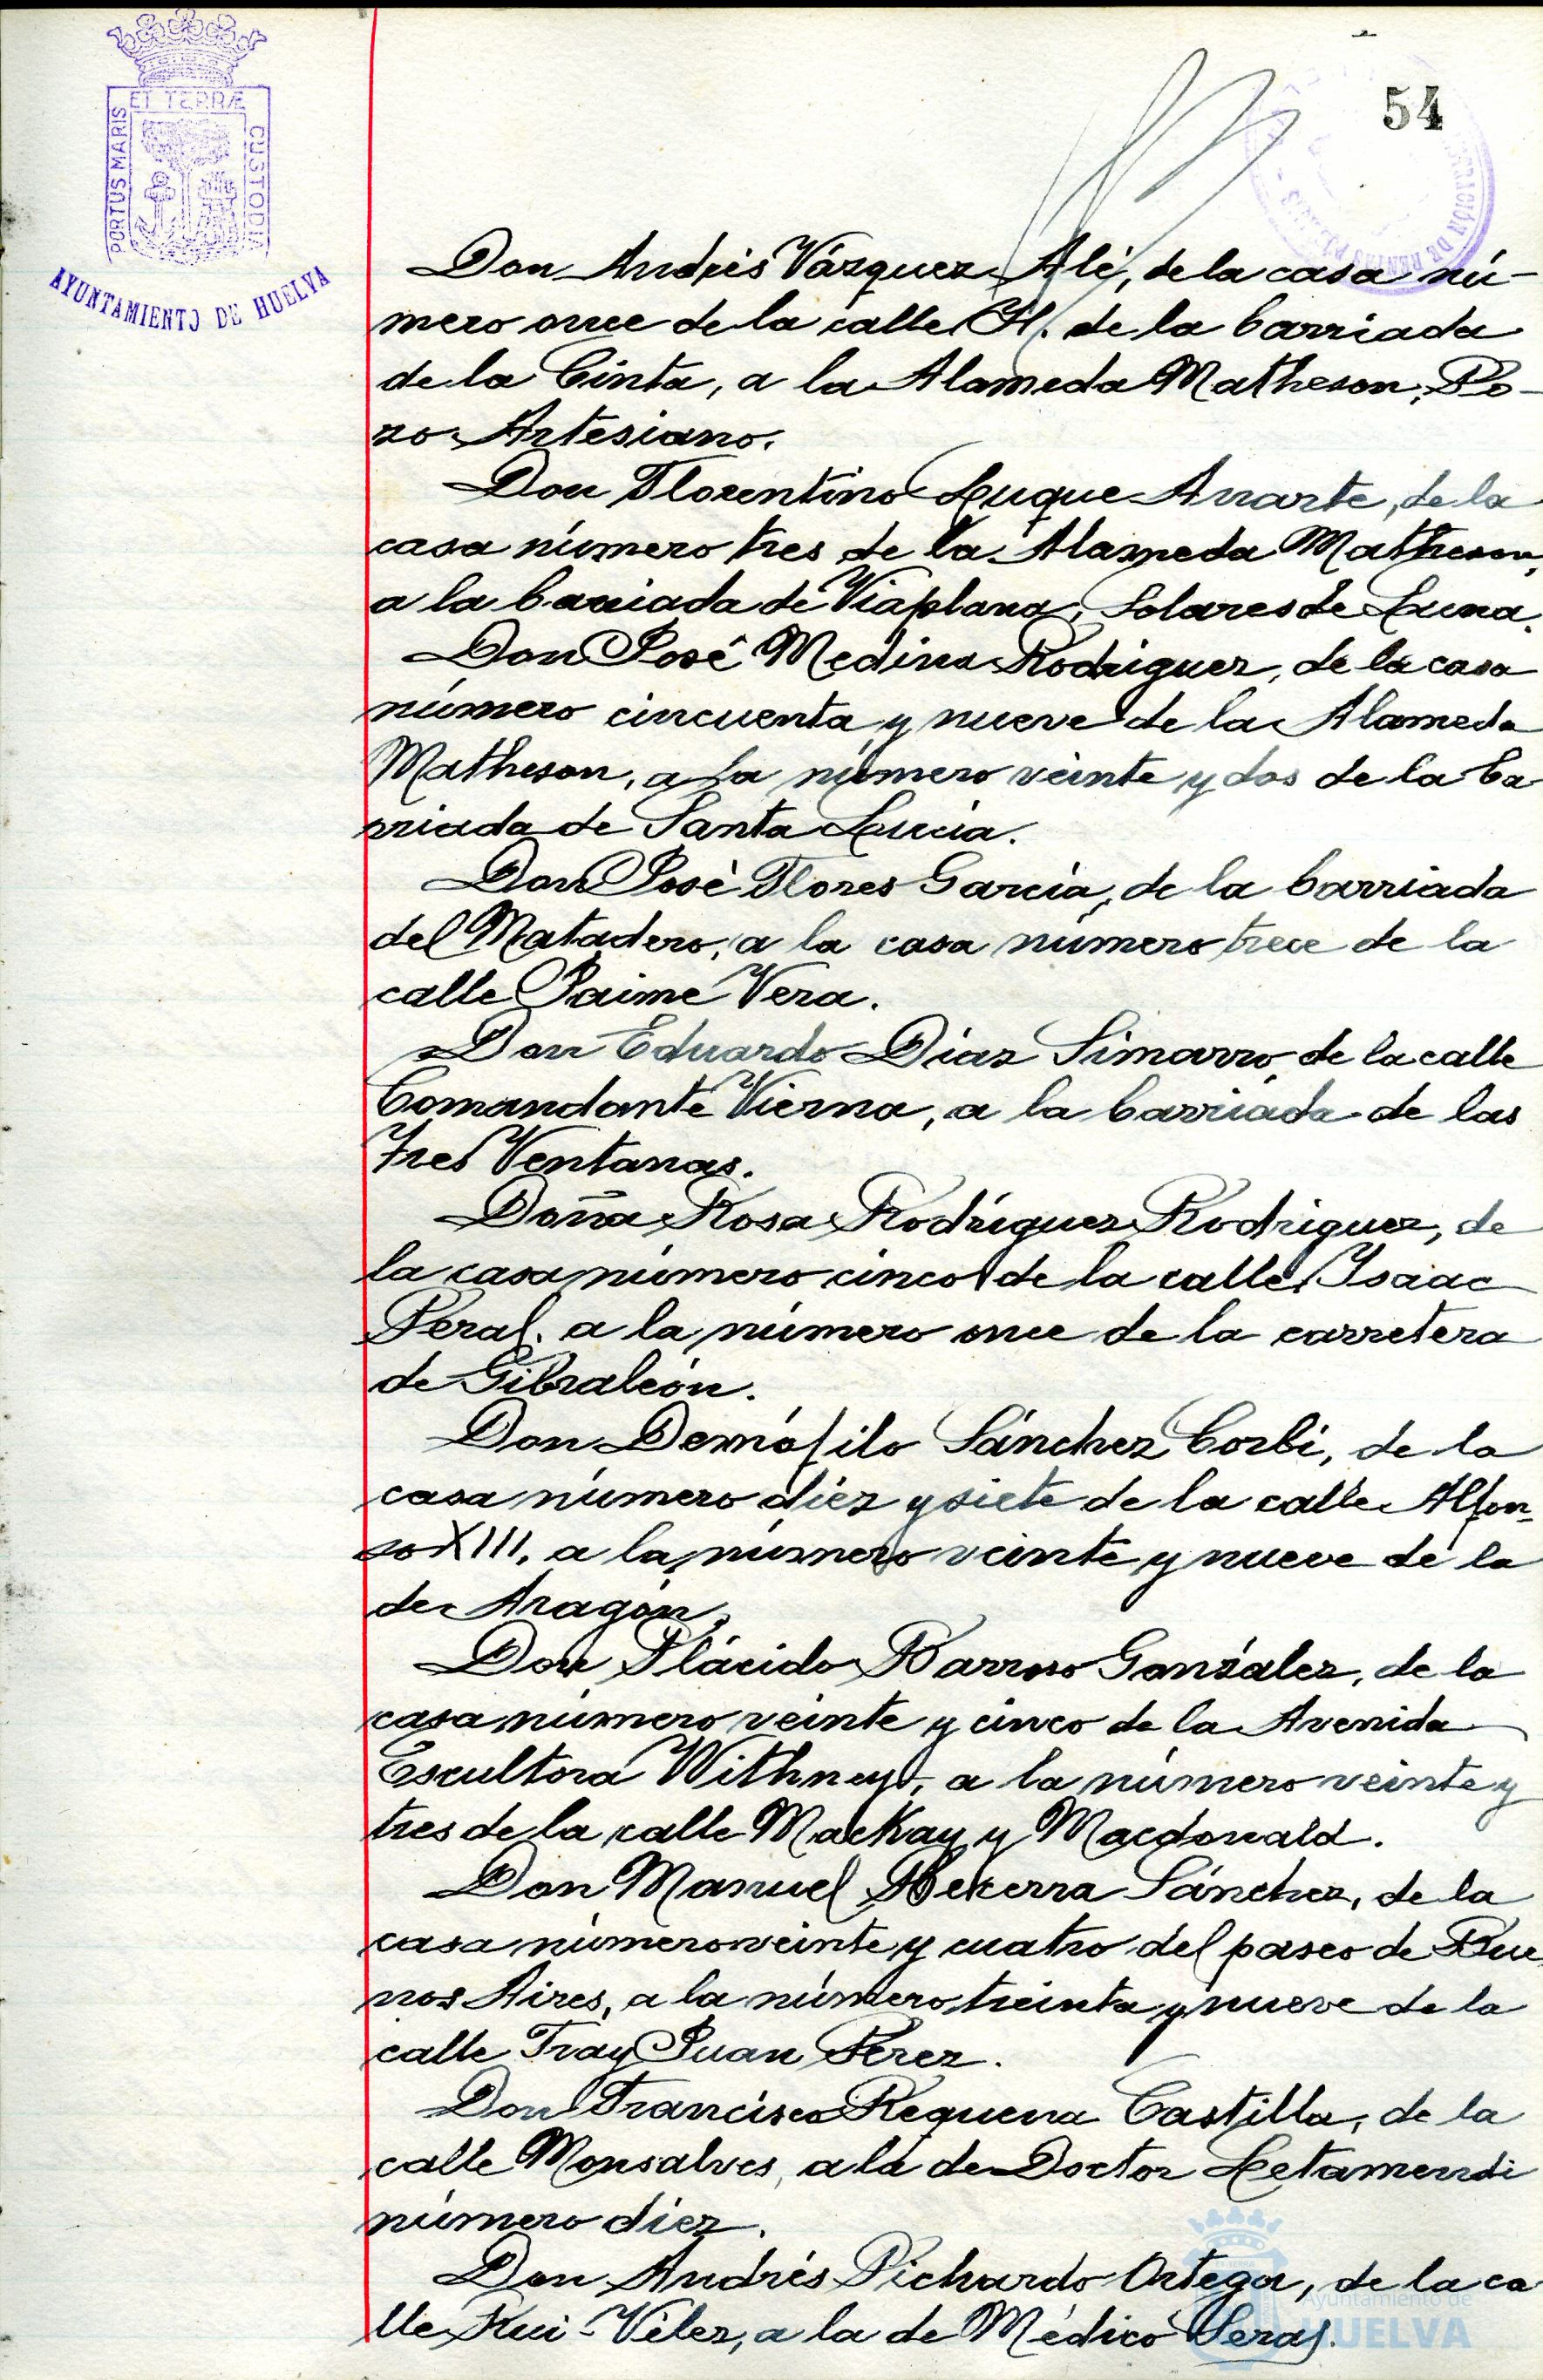 ET TERRÆ
PORTUS MARIS
CUSTODIA
AYUNTAMIENTO DE HUELVA
54
Don Andrés Vázquez Alé, de la casa nú-
mero once de la calle H. de la barriada
de la Cinta, a la Alameda Matheson, Po-
zo Artesiano.
Don Florentino Luque Arrarte, de la
casa número tres de la Alameda Matheson,
a la barriada de Viaplana, Solares de Luna.
Don José Medina Rodriguez, de la casa
número cincuenta y nueve de la Alameda
Matheson, a la número veinte y dos de la ba
rriada de Santa Lucia.
Don José Flores García, de la barriada
del Matadero, a la casa número trece de la
calle Jaime Vera.
Don Eduardo Diaz Simarro, de la calle
Comandante Vierna, a la barriada de las
Tres Ventanas.
Doña Rosa Rodríguez Rodriguez, de
la casa número cinco de la calle Isaac
Peral, a la número once de la carretera
de Gibraleón.
Don Demófilo Sánchez Corbi, de la
casa número diez y siete de la calle Alfon-
so XIII, a la número veinte y nueve de la
de Aragón.
Don Plácido Barroso González, de la
casa número veinte y cinco de la Avenida
Escultora Withney, a la número veinte y
tres de la calle Mackay y Macdonald.
Don Manuel Becerra Sánchez, de la
casa número veinte y cuatro del paseo de Bue
nos Aires, a la número treinta y nueve de la
calle Fray Juan Pérez.
Don Francisco Requena Castilla, de la
calle Monsalves, a la de Doctor Letamendi
número diez.
Don Andrés Pichardo Ortega, de la ca
lle Rui-Vélez, a la de Médico Seras.
Ayuntamiento de
HUELVA